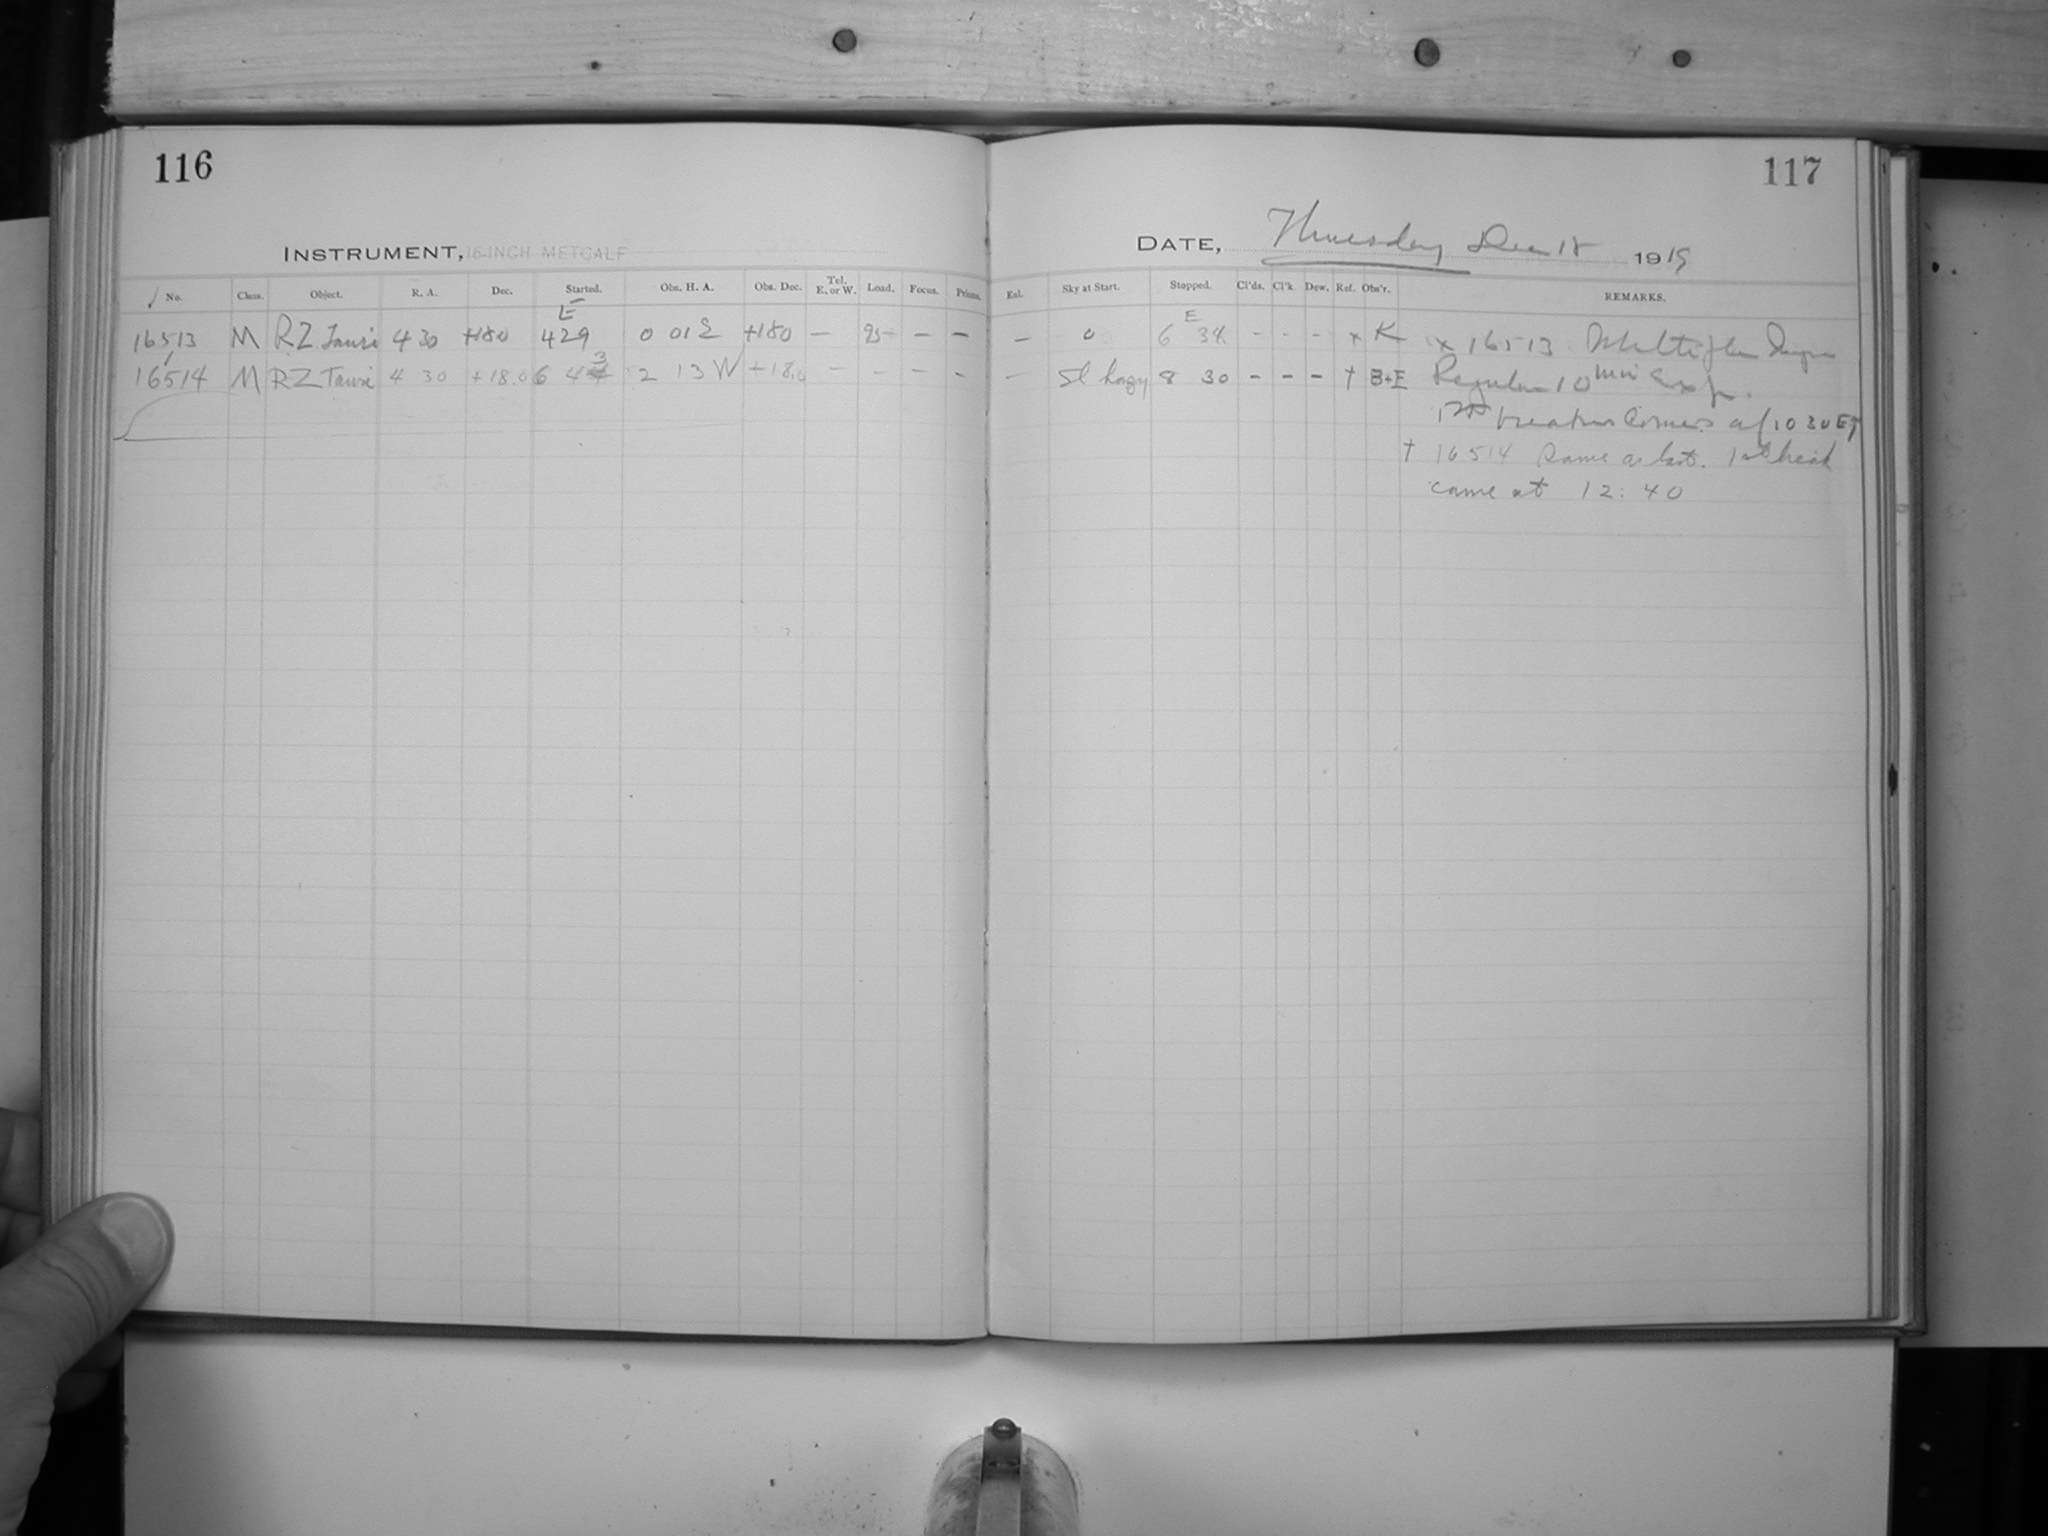 116
INSTRUMENT, 16-INCH METCALF
✓ No. Class. Object. R. A. Dec. Started. Obs. H. A. Obs. Dec. Tel. E. or W. Load. Focus. Prisms.
E
16513 M RZ Tauri 4 30 +180 4 29 0 01 E +180 — 95 — —
16514 M RZ Tauri 4 30 +18.0 6 43 2 13 W +18.0 — - - -
117
DATE, Thursday Dec 18 1919
Enl. Sky at Start. Stopped. Cl'ds. Cl'k Dew. Ref. Obs'r. REMARKS.
E
— 0 6 38 - - - x K x 16513 Multiple
— Sl hazy 8 30 - - - † B+E Regular 10 min Exp.
1st break comes at 10 30 ET
† 16514 Same as last. 1st break
came at 12:40